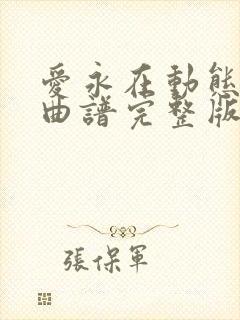 愛永在動態
曲譜完整版
張保軍